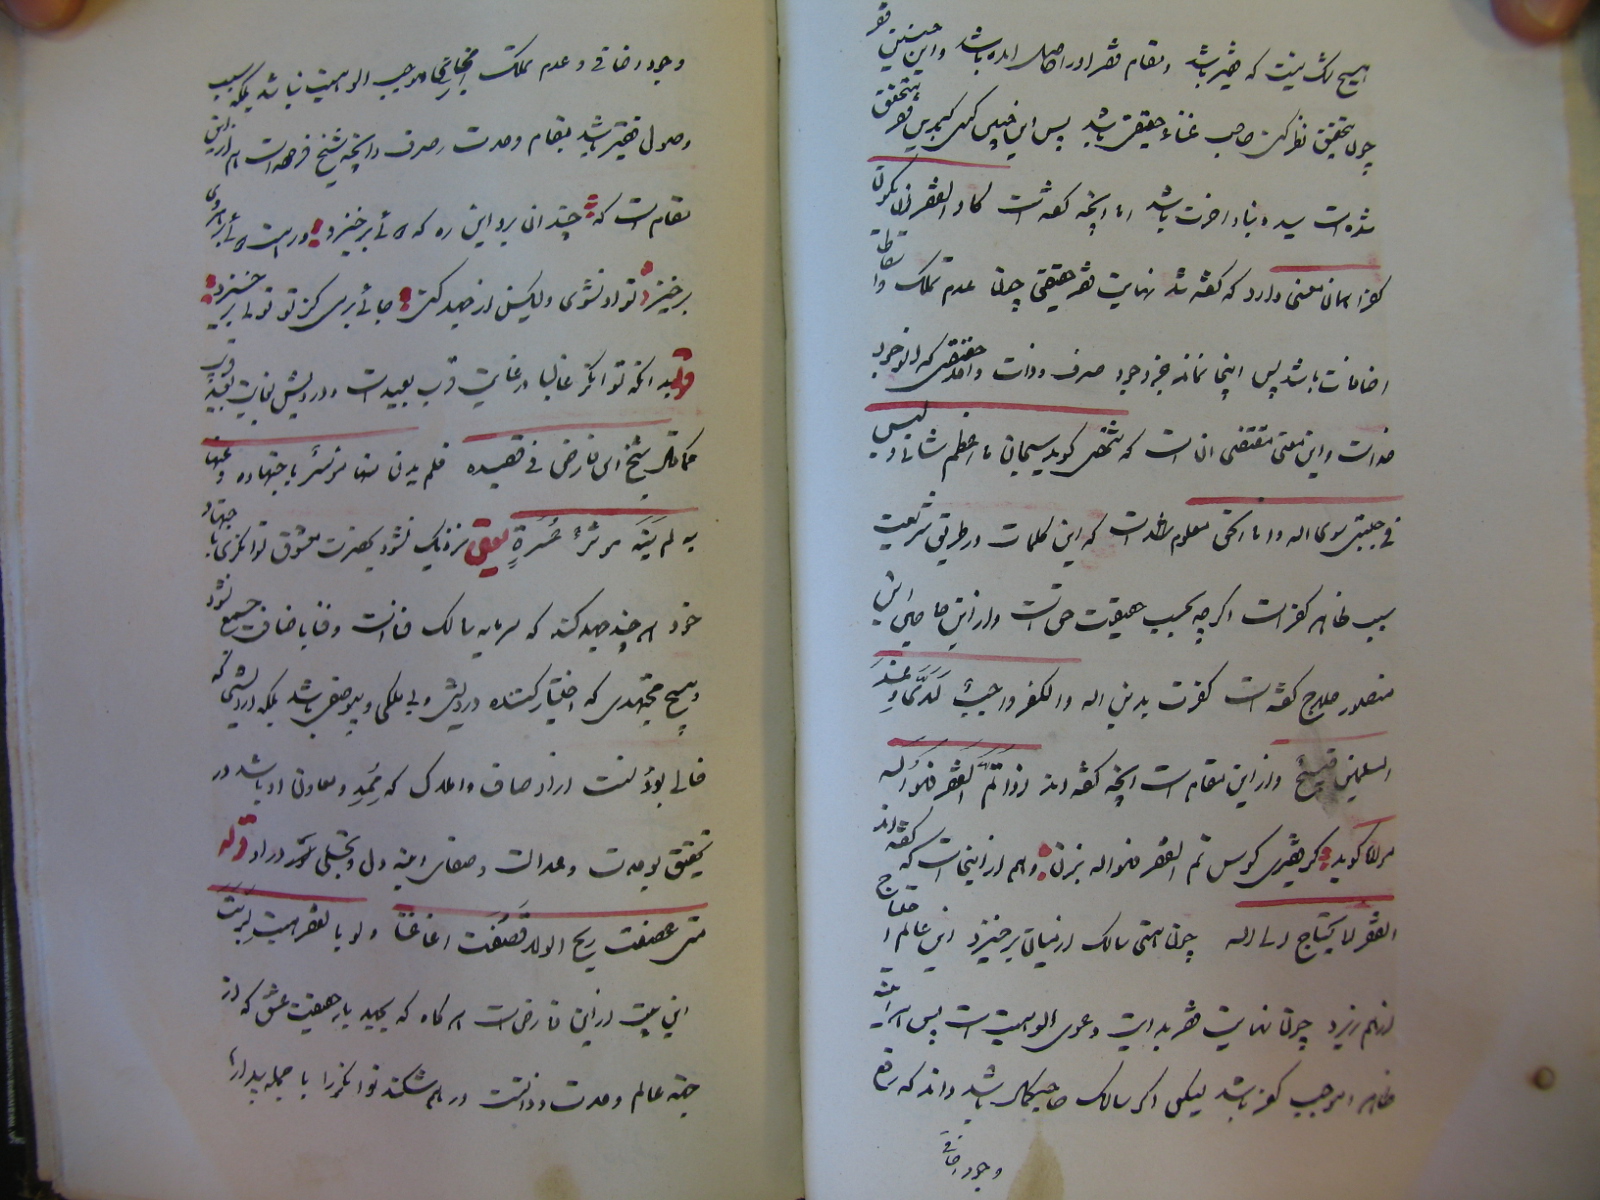 هیچ ملک نیست که فقیر باشد و مقام فقر او را حاصل آمده باشد و این چنین فقر
چون بتحقیق نظر کنی صاحب غناء حقیقی باشد پس این چنین کس که بدین فقر متحقق
شده است سید دنیا و آخرت باشد اما آنچه گفته است کاد الفقر ان یکون
کفرا همان معنی دارد که گفته شد نهایت فقر حقیقی چون عدم تملک و اسقاط
اضافات باشد پس اینجا نماند جز وجود صرف و ذات واحد حقیقی که الوجود
خداست و این معنی مقتضی آن است که شخصی گوید سبحانی ما اعظم شانی و لیس
فی جبتی سوی الله و انا الحق معلوم است که این کلمات در طریق شریعت
سبب ظاهر کفر است اگر چه بحسب حقیقت حق است و از این جا حسین ابن
منصور حلاج گفته است کفرت بدین الله والکفر واجب لدی و عند
المسلمین قبیح و از این مقام است آنچه گفته اند اذا تم الفقر فهو الله
مولانا گوید کوس تم الفقر فهو الله بزن و هم از اینجاست که گفته اند
الفقر لا یحتاج الی الله چون هستی سالک از میان برخیزد این عالم احتیاج
از هم ریزد چون نهایت فقر بدایت دعوی الوهیت است پس هر آینه
ظاهر موجب کفر باشد لیکن اگر سالک صاحب کمال باشد داند که رفع
وجود اضافی
وجود اضافی و عدم تملک موجب الوهیت نباشد بلکه سبب
وصول فقیر باشد بمقام وحدت صرف و آنچه شیخ فرموده است هم از این
مقام است که چندان برو این ره که دوئی برخیزد ور هست دوئی برهروی
برخیزد تو او نشوی ولیکن ار جهد کنی جائی برسی کز تو توئی برخیزد
قوله آنکه توانگر غالبا در غایت قرب بعید است و درویش در غایت بعد قریب
کما قال شیخ ابن فارض فی قصیده فلم یدن منها موسر باجتهاده و عنها
به لم ینأ موثر عسرة یعنی نزدیک نشود بحضرت معشوق توانگری باجتهاد
خود هر چند جهد کند که سرمایه سالک فناست و فنا با اضافت جمع نشود
و هیچ مجتهدی که اختیار کننده درویشی و بی ملکی و بی وصفی باشد بلکه درویشی که
خالی بود از اوصاف و املاک که ممد و معاون او باشد در
تحقق بوحدت و عدالت و صفای آینه دل و تجلی در او قوله
متی عصفت ریح الولا قصفت اخا غنا ولو بالفقر هبت لربت
این بیت از ابن فارض است هر گاه که بجهد باد حقیقت عشق که از
جنبه عالم وحدت و ذاتست در هم شکند توانگر را با جمله پندار